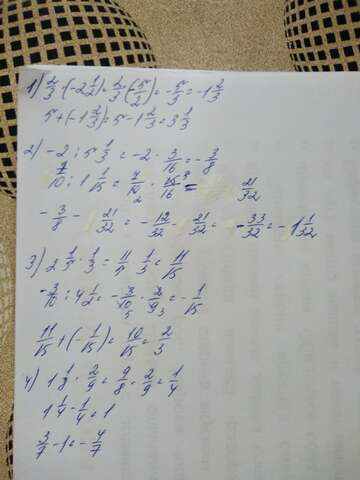 1) 2/3·(-2 1/2)=2/3·(-5/2)=-5/3=-1 2/3
5+(-1 2/3)=5-1 2/3=3 1/3
2) -2:5 1/3=-2·3/16=-3/8
7/10:1 1/15=7/10·15/16= 21/32
-3/8-21/32=-12/32-21/32=-33/32=-1 1/32
3) 2 1/5·1/3=11/5·1/3=11/15
-3/10:4 1/2=-3/10·2/9=-1/15
11/15+(-1/15)=10/15=2/3
4) 1 1/8·2/9=9/8·2/9=1/4
1 1/4-1/4=1
3/7-1=-4/7